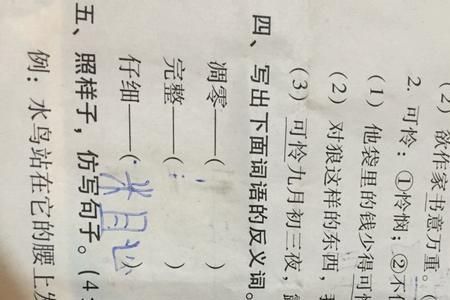 (2) 欲作家书意万重。
2. 可怜：①怜悯；②不
(1) 他袋里的钱少得可怜
(2) 对狼这样的东西，
(3) 可怜九月初三夜，
四、写出下面词语的反义词。
凋零——( )
完整——( )
仔细——(粗心)
五、照样子，仿写句子。(4
例：水鸟站在它的腰上发